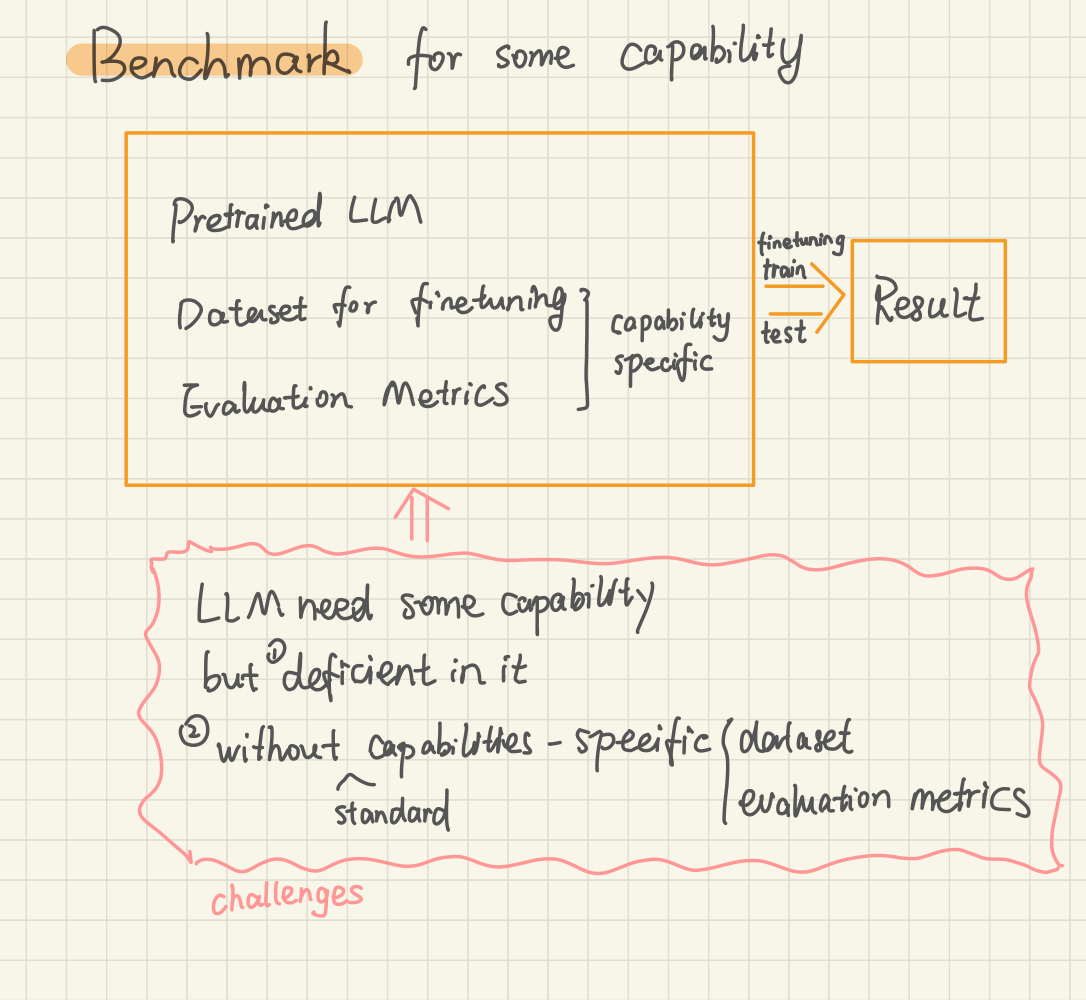 Benchmark for some capability
Pretrained LLM
Dataset for finetuning
Evaluation Metrics
capability
specific
finetuning
train
test
Result
LLM need some capability
but ① deficient in it
② without capabilities - speeific
standard
dataset
evaluation metrics
challenges